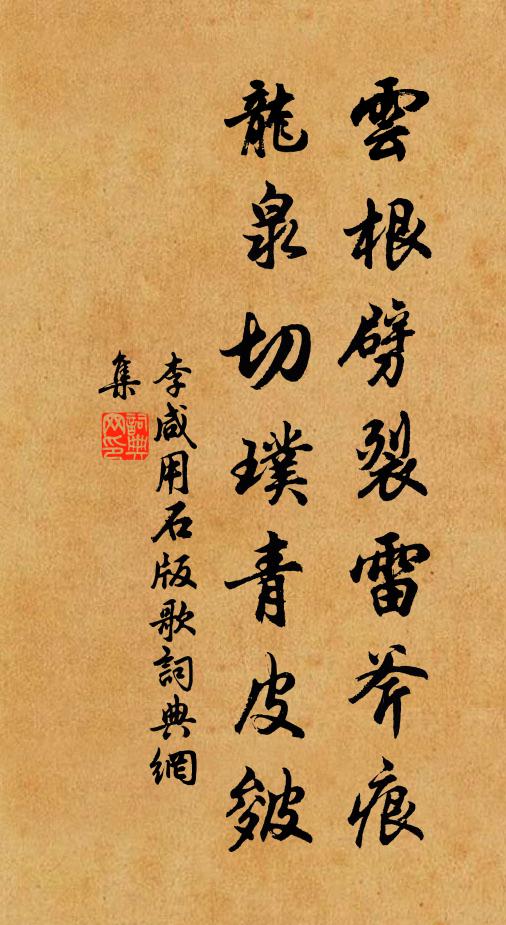 雲根劈裂雷斧痕
龍泉切璞青皮皴
李咸用石版歌詞典網
集
詞典网印